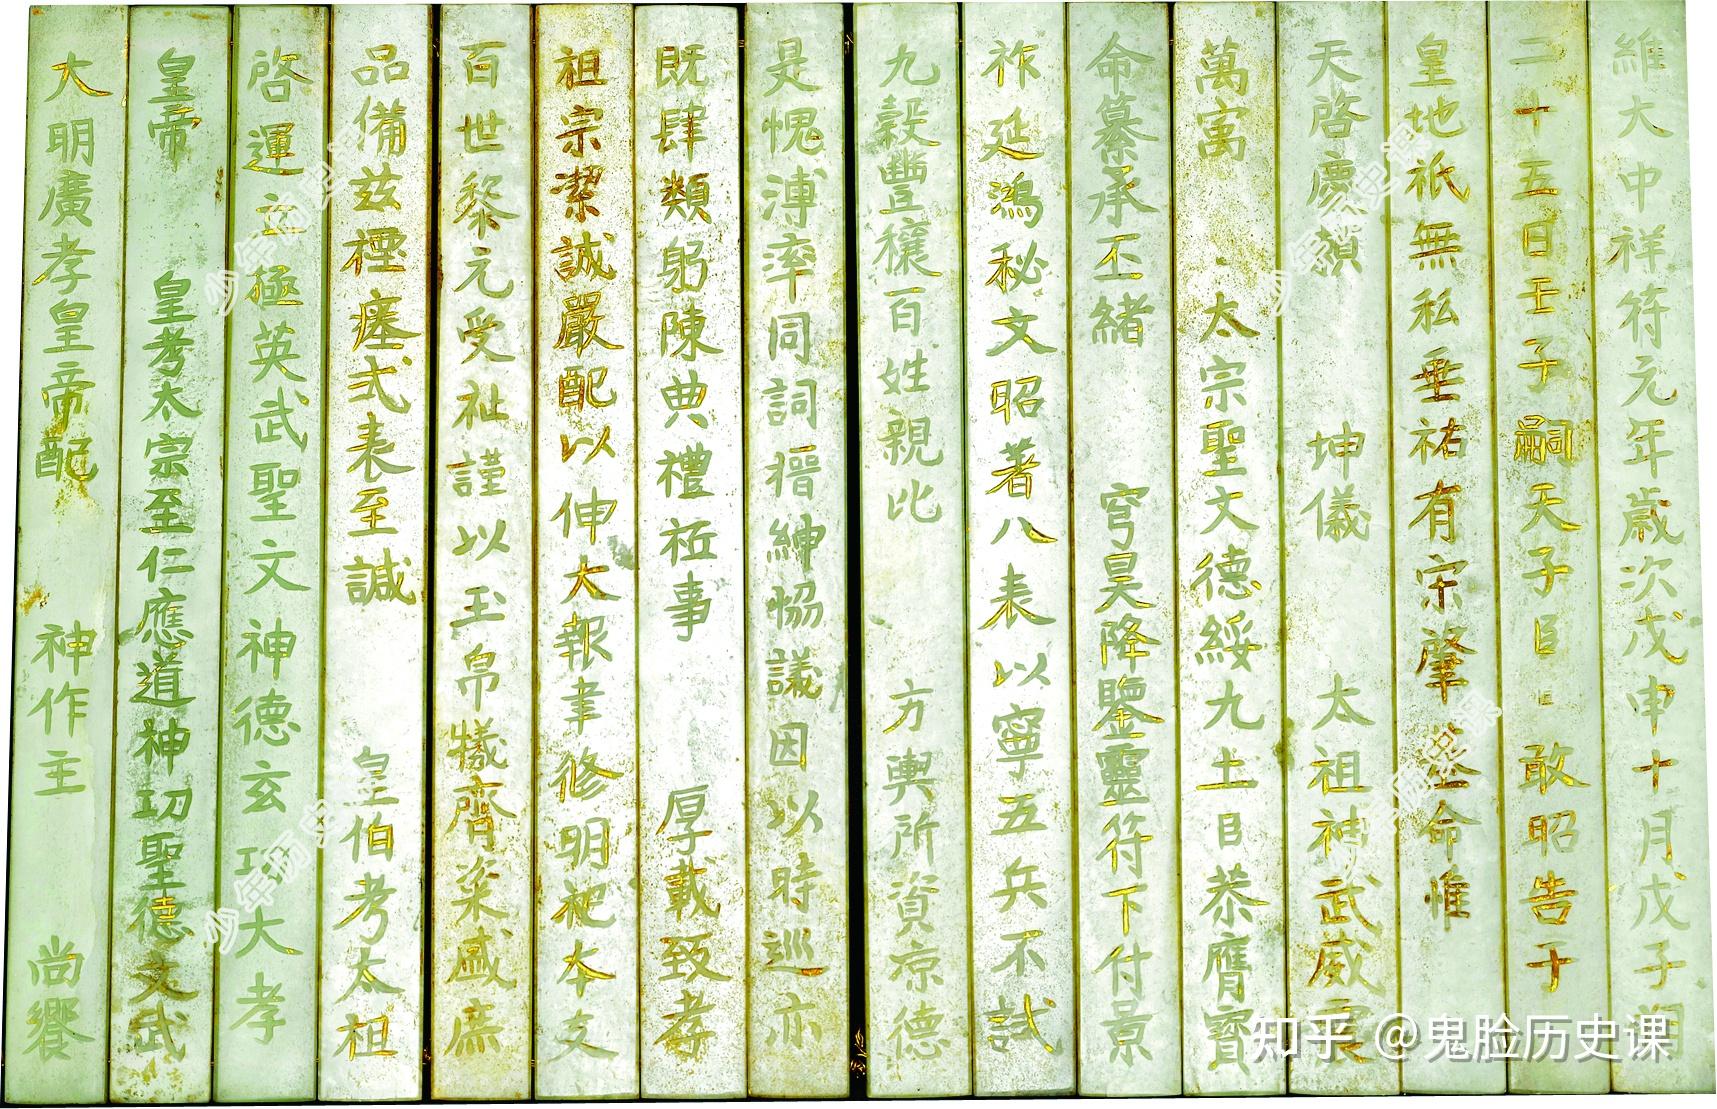 維大中祥符元年歲次戊申十月戊子朔
二十五日壬子嗣天子臣 敢昭告于
皇地祇無私垂祐有宋肇基命惟
天啓慶赜 坤儀 太祖神武威震
萬寓 太宗聖文德綏九土臣恭膺寶
命纂承丕緒 穹昊降鑒靈符下付景
祚延鴻秘文昭著八表以寧五兵不試
九穀豐穰百姓親比 方輿所資凉德
是愧溥率同詞搢紳恊議因以時巡亦
既肆類躬陳典禮祗事 厚載致孝
祖宗潔誠嚴配以伸大報聿修明祀本支
百世黎元受祉謹以玉帛犧齊粢盛庶
品備茲禋瘞式表至誠 皇伯考太祖
啓運立極英武聖文神德玄功大孝
皇帝 皇考太宗至仁應道神功聖德文武
大明廣孝皇帝配 神作主 尚饗
知乎 @鬼脸历史课